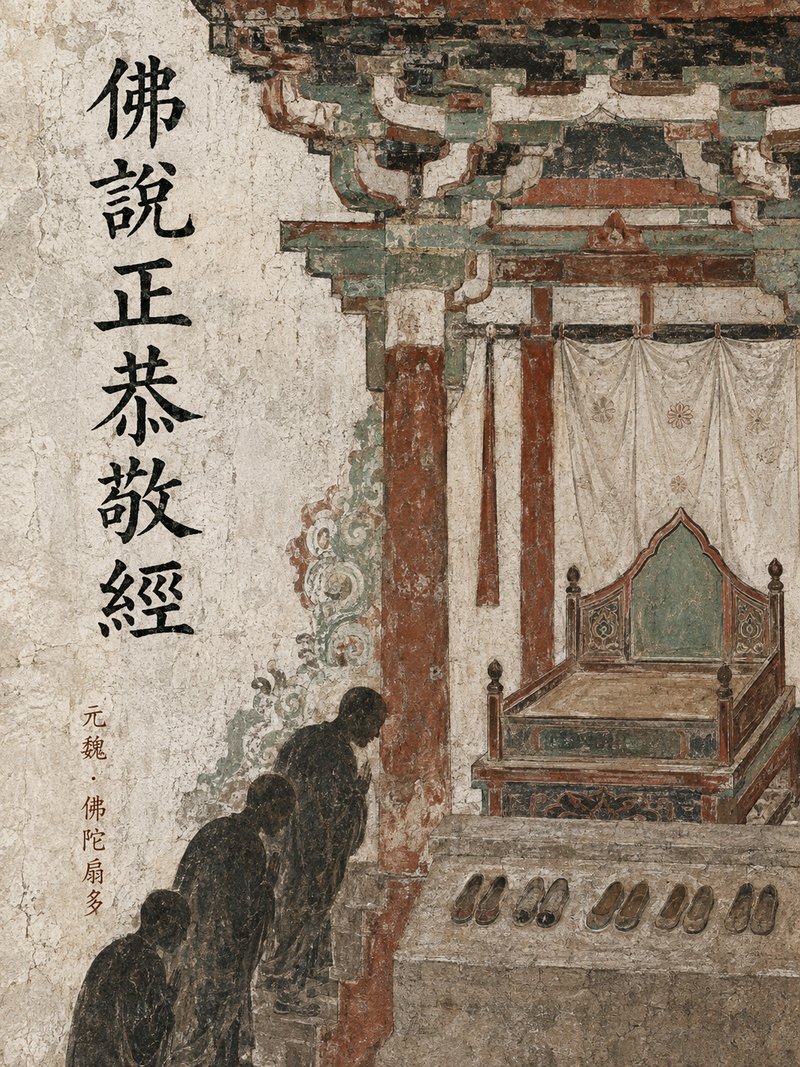 佛說正恭敬經
元魏·佛陀扇多